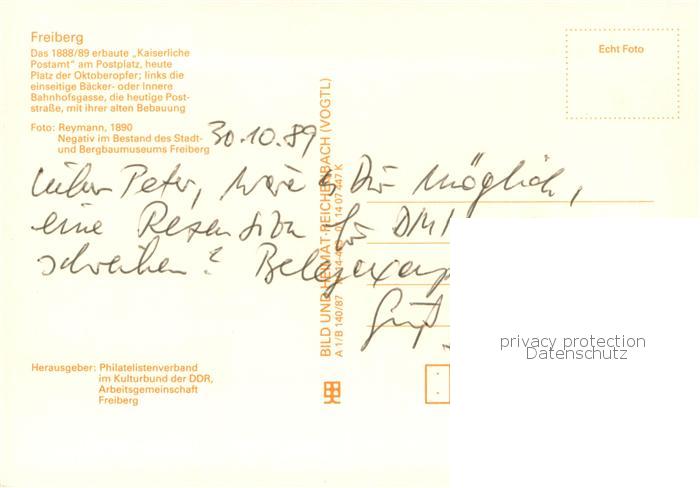 Freiberg
Das 1888/89 erbaute „Kaiserliche
Postamt“ am Postplatz, heute
Platz der Oktoberopfer; links die
einseitige Bäcker- oder Innere
Bahnhofsgasse, die heutige Post-
straße, mit ihrer alten Bebauung
Foto: Reymann, 1890
Negativ im Bestand des Stadt-
und Bergbaumuseums Freiberg
Echt Foto
30.10.89
Lieber Peter, wäre es Dir möglich,
eine Rezension für DMI
schreiben? Belegexemp
Gruß
BILD UND HEIMAT REICHENBACH (VOGTL)
A 1/B 140/87
01 14 07 447 K
Herausgeber: Philatelistenverband
im Kulturbund der DDR,
Arbeitsgemeinschaft
Freiberg
privacy protection
Datenschutz